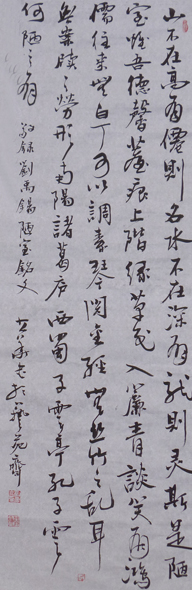 山不在高有僊則名水不在深有龙則灵斯是陋
室唯吾德馨苔痕上階綠草色入簾青談笑有鴻
儒往来無白丁可以調素琴閱金經無丝竹之乱耳
無案牘之勞形南陽諸葛庐西蜀子雲亭孔子云
何陋之有 敬錄劉禹錫陋室銘文 於藝苑齋